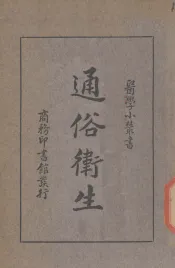 醫學小叢書
通俗衛生
商務印書館發行